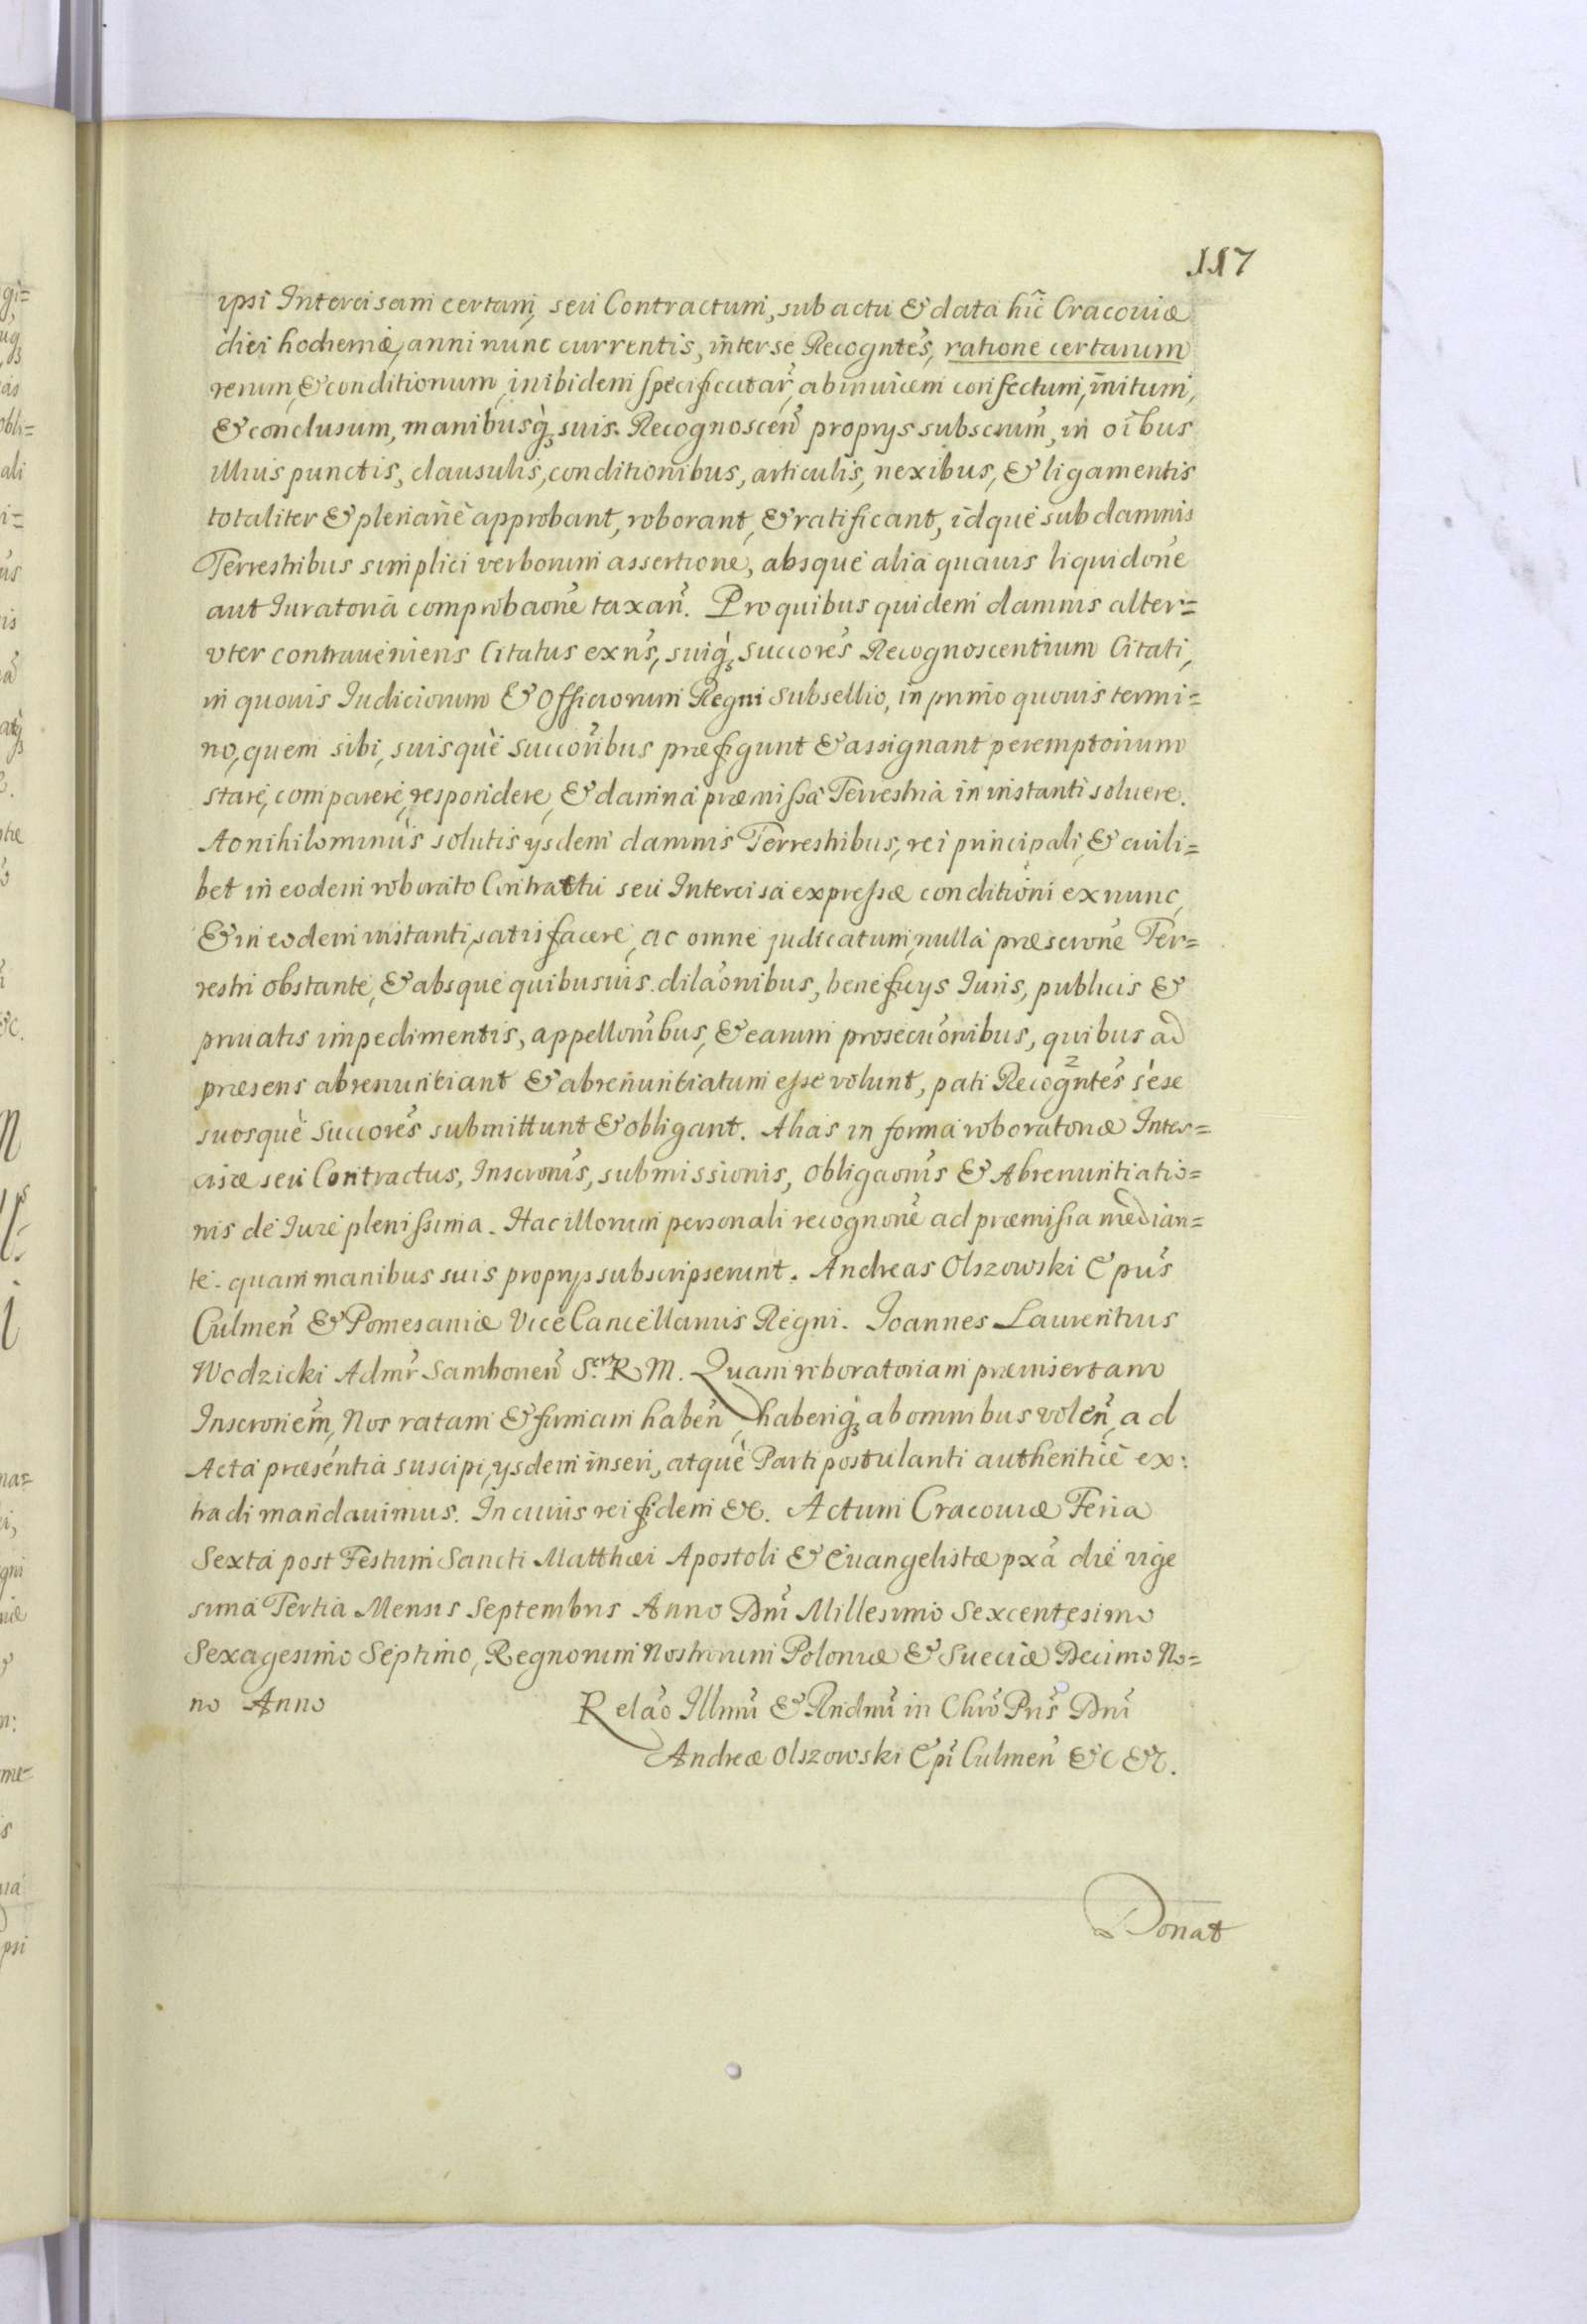 117
ipsi Intercisam certam, seu Contractum, sub actu & data hic Cracouiæ
diei hodiernæ, anni nunc currentis, inter se Recogntes, ratione certarum
rerum, & conditionum, inibidem specificatar, abinuicem confectum, initum,
& conclusum, manibusq suis Recognoscen proprys subscrium, in oibus
illius punctis, clausulis, conditionibus, articulis, nexibus, & ligamentis
totaliter & plenariè approbant, roborant, & ratificant, idque sub damnis
Terrestribus simplici verborum assertione, absque alia quauis liquidone
aut Iuratoria comprobaone taxan. Pro quibus quidem damnis alter=
vter contraueniens Citatus ex ns, suiq succores Recognoscentium Citati,
in quouis Iudiciorum & Officiorum Regni subsellio, in primo quouis termi=
no, quem sibi, suisquè succoribus præfigunt & assignant peremptorium
stare, comparere, respondere, & damna præmissa Terrestria in instanti soluere.
Ac nihilominus solutis ysdem damnis Terrestribus, rei principali, & cuili=
bet in eodem roborato Contractu seu Intercisa expressæ conditioni ex nunc,
& in eodem instanti, satisfacere, ac omne judicatum, nulla præscrone Ter=
restri obstante, & absque quibusuis dilaonibus, beneficys Iuris, publicis &
priuatis impedimentis, appellonibus, & earum prosecuonibus, quibus ad
præsens abrenuntiant & abrenuntiatum esse volunt, pati Recogntes sese
suosquè succores submittunt & obligant. Alias in forma roboratoriæ Inter=
cisæ seu Contractus, Inscronis, submissionis, obligaonis & Abrenuntiatio=
nis de Iure plenissima. Hac illorum personali recognone ad præmissa median=
te. quam manibus suis proprys subscripserunt. Andreas Olszowski Epus
Culmen & Pomesaniæ Vice Cancellarius Regni. Joannes Laurentius
Wodzicki Admr Samborien S.ᵉʳ R M. Quam roboratoriam præinsertam
Inscronem, Nos ratam & firmam haben, haberiq ab omnibus volen, ad
Acta præsentia suscipi, ysdem inseri, atquè Parti postulanti authenticè ex:
tradi mandauimus. In cuius rei fidem &c. Actum Cracouiæ Feria
Sexta post Festum Sancti Matthæi Apostoli & Euangelistæ pxa die vige
sima Tertia Mensis Septembris Anno Dni Millesimo Sexcentesimo
Sexagesimo Septimo, Regnorum Nostrorum Poloniæ & Sueciæ Decimo No=
no Anno
Relao Illmi & Rndmi in Chro Pris Dni
Andreæ Olszowski Epi Culmen &c &c.
Donat